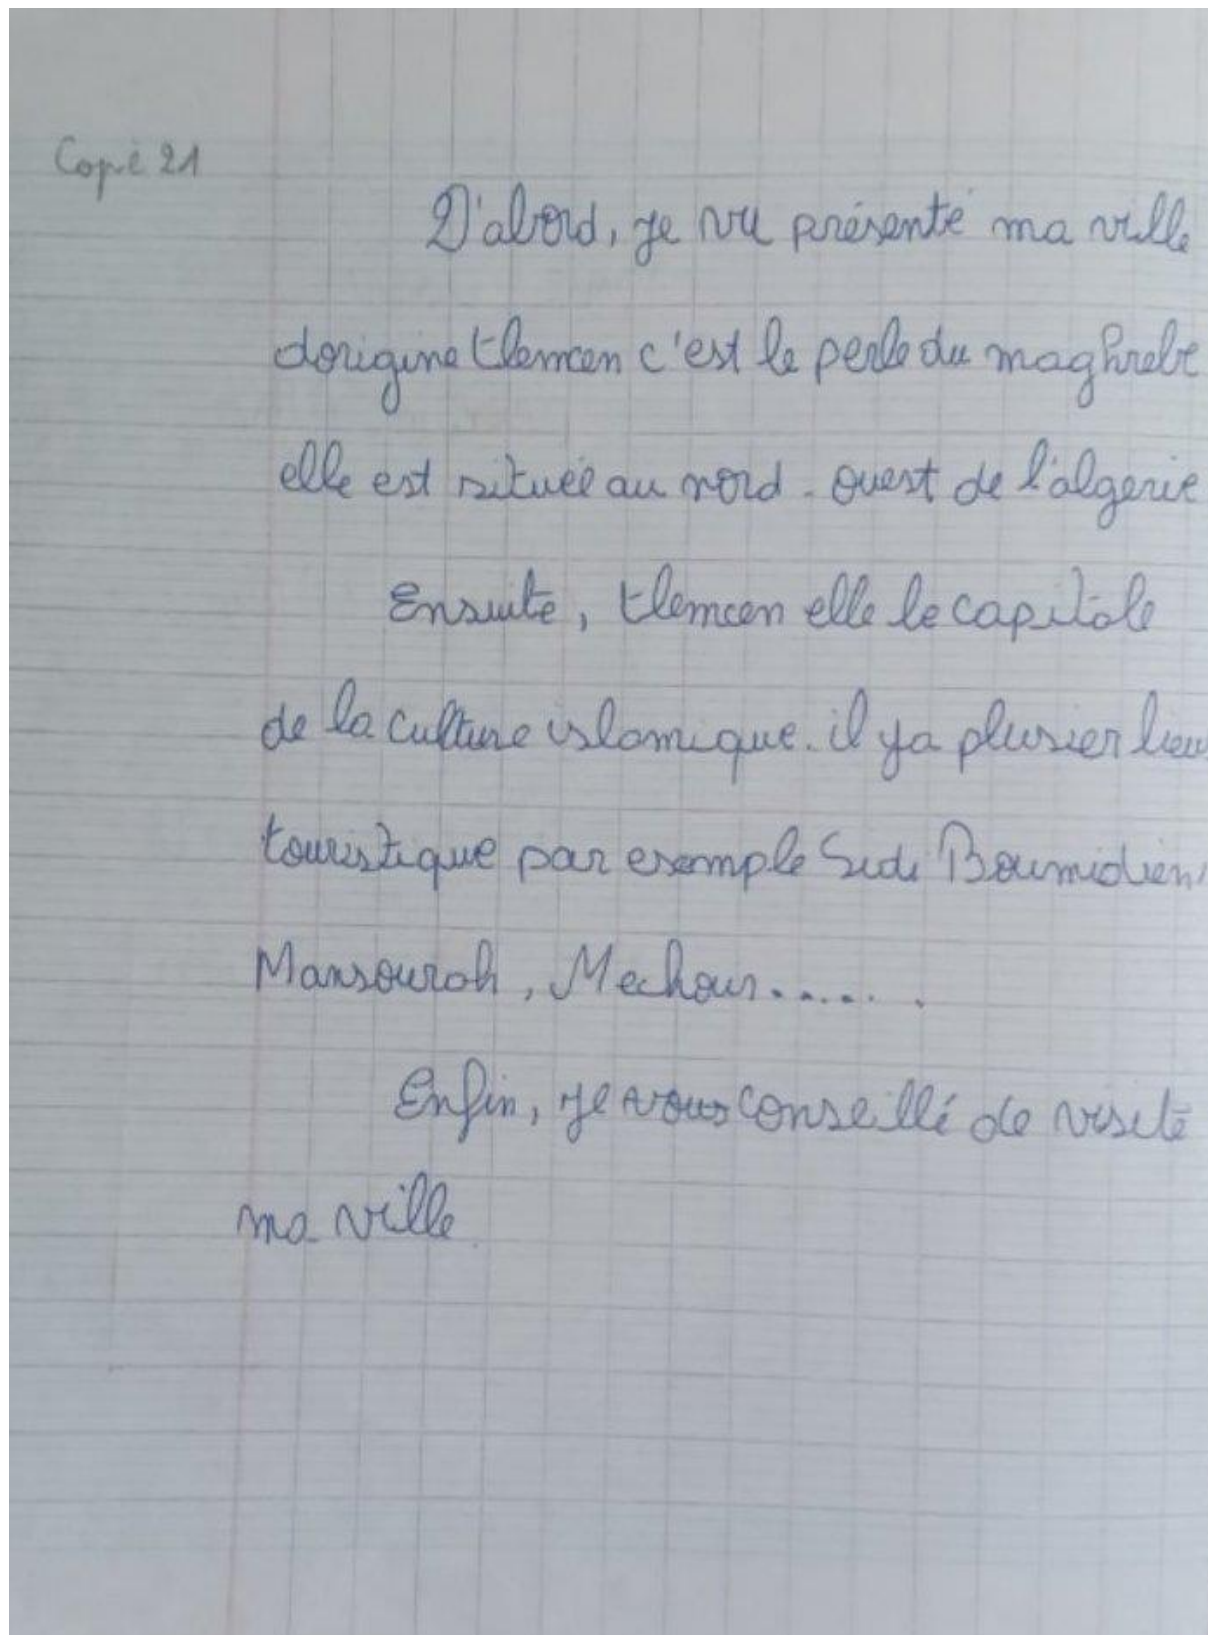 Copie 21
D'abord, je vu présenté ma ville
dorigine tlemcen c'est le perle du maghrebe
elle est située au nord - ouest de l'algerie
Ensuite, tlemcen elle le capitale
de la culture islamique. il ya plusier lieu
touristique par exemple Sidi Boumidien,
Mansourah, Mechour......
Enfin, je vous conseillé de visité
ma ville.